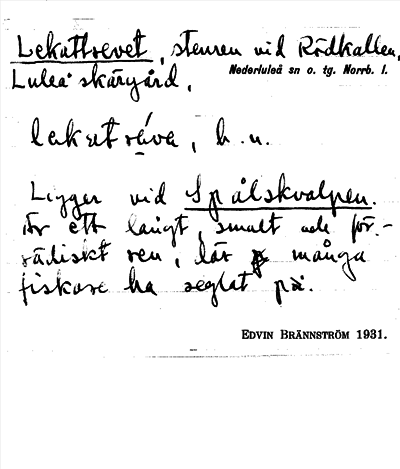 Lekattrevet, stenren vid Rödkallen,
Luleå skärgård,
Nederluleå sn o. tg. Norrb. l.
lekatrǻva, b. n.
Ligger vid Spålskvalpen.
Är ett långt, smalt och för-
rädiskt rev, där många
fiskare ha seglat på.
EDVIN BRÄNNSTRÖM 1931.